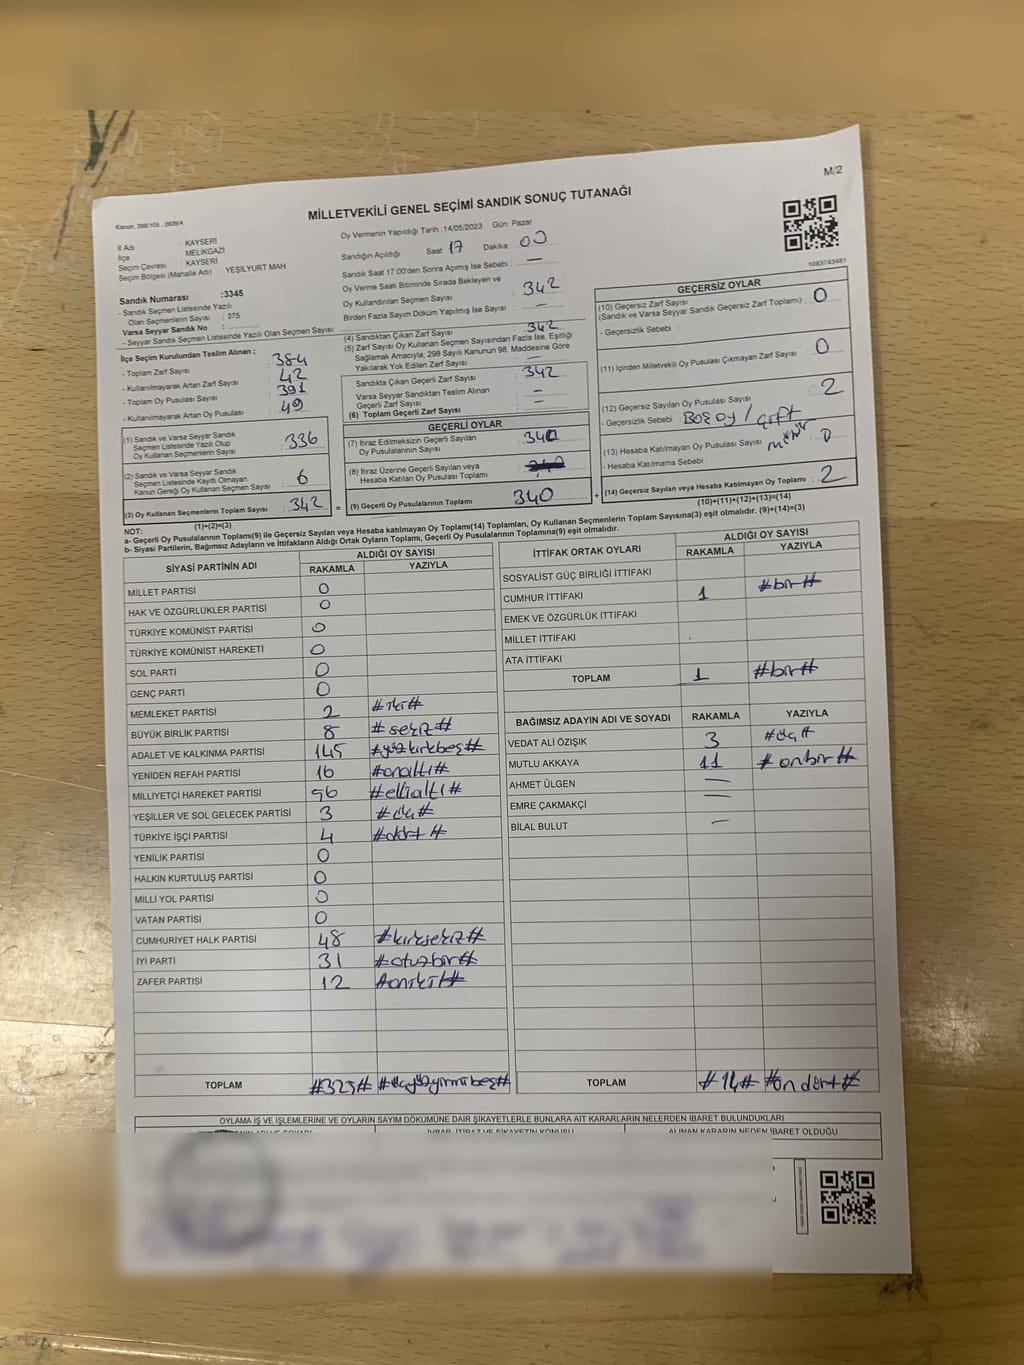 M/2
Kanun, 298/105 , 2839/4
MİLLETVEKİLİ GENEL SEÇİMİ SANDIK SONUÇ TUTANAĞI
İl Adı : KAYSERİ
İlçe : MELİKGAZİ
Seçim Çevresi : KAYSERİ
Seçim Bölgesi (Mahalle Adı) : YEŞİLYURT MAH
Sandık Numarası :3345
- Sandık Seçmen Listesinde Yazılı
Olan Seçmenlerin Sayısı : 375
Varsa Seyyar Sandık No :
- Seyyar Sandık Seçmen Listesinde Yazılı Olan Seçmen Sayısı:
İlçe Seçim Kurulundan Teslim Alınan ;
- Toplam Zarf Sayısı : 384
- Kullanılmayarak Artan Zarf Sayısı : 42
- Toplam Oy Pusulası Sayısı : 391
- Kullanılmayarak Artan Oy Pusulası : 49
(1) Sandık ve Varsa Seyyar Sandık
Seçmen Listesinde Yazılı Olup
Oy Kullanan Seçmenlerin Sayısı : 336
(2) Sandık ve Varsa Seyyar Sandık
Seçmen Listesinde Kayıtlı Olmayan
Kanun Gereği Oy Kullanan Seçmen Sayısı : 6
(3) Oy Kullanan Seçmenlerin Toplam Sayısı : 342
(1)+(2)=(3)
Oy Vermenin Yapıldığı Tarih :14/05/2023 Gün: Pazar
Sandığın Açıldığı Saat : 17 Dakika : 00
Sandık Saat 17'00'den Sonra Açımış İse Sebebi : —
Oy Verme Saati Bitiminde Sırada Bekleyen ve
Oy Kullandırılan Seçmen Sayısı : 342
Birden Fazla Sayım Döküm Yapılmış İse Sayısı : —
(4) Sandıktan Çıkan Zarf Sayısı : 342
(5) Zarf Sayısı Oy Kullanan Seçmen Sayısından Fazla İse, Eşitliği
Sağlamak Amacıyla, 298 Sayılı Kanunun 98. Maddesine Göre
Yakılarak Yok Edilen Zarf Sayısı : —
Sandıkta Çıkan Geçerli Zarf Sayısı : 342
Varsa Seyyar Sandıktan Teslim Alınan
Geçerli Zarf Sayısı : —
(6) Toplam Geçerli Zarf Sayısı : —
GEÇERLİ OYLAR
(7) İtiraz Edilmeksizin Geçerli Sayılan
Oy Pusulalarının Sayısı : 340
(8) İtiraz Üzerine Geçerli Sayılan veya
Hesaba Katılan Oy Pusulası Toplamı :
= (9) Geçerli Oy Pusulalarının Toplamı : 340
1083743481
GEÇERSİZ OYLAR
(10) Geçersiz Zarf Sayısı
(Sandık ve Varsa Seyyar Sandık Geçersiz Zarf Toplamı) : 0
- Geçersizlik Sebebi :
(11) İçinden Milletvekili Oy Pusulası Çıkmayan Zarf Sayısı : 0
(12) Geçersiz Sayılan Oy Pusulası Sayısı : 2
- Geçersizlik Sebebi : Boş oy / çift mühür
(13) Hesaba Katılmayan Oy Pusulası Sayısı : 0
- Hesaba Katılmama Sebebi :
+ (14) Geçersiz Sayılan veya Hesaba Katılmayan Oy Toplamı : 2
(10)+(11)+(12)+(13)=(14)
NOT:
a- Geçerli Oy Pusulalarının Toplamı(9) ile Geçersiz Sayılan veya Hesaba katılmayan Oy Toplamı(14) Toplamları, Oy Kullanan Seçmenlerin Toplam Sayısına(3) eşit olmalıdır. (9)+(14)=(3)
b- Siyasi Partilerin, Bağımsız Adayların ve İttifakların Aldığı Ortak Oyların Toplamı, Geçerli Oy Pusulalarının Toplamına(9) eşit olmalıdır.
SİYASİ PARTİNİN ADI ALDIĞI OY SAYISI
RAKAMLA YAZIYLA
MİLLET PARTİSİ 0
HAK VE ÖZGÜRLÜKLER PARTİSİ 0
TÜRKİYE KOMÜNİST PARTİSİ 0
TÜRKİYE KOMÜNİST HAREKETİ 0
SOL PARTİ 0
GENÇ PARTİ 0
MEMLEKET PARTİSİ 2 #iki#
BÜYÜK BİRLİK PARTİSİ 8 #sekiz#
ADALET VE KALKINMA PARTİSİ 145 #yüzkırkbeş#
YENİDEN REFAH PARTİSİ 16 #onaltı#
MİLLİYETÇİ HAREKET PARTİSİ 56 #ellialtı#
YEŞİLLER VE SOL GELECEK PARTİSİ 3 #üç#
TÜRKİYE İŞÇİ PARTİSİ 4 #dört#
YENİLİK PARTİSİ 0
HALKIN KURTULUŞ PARTİSİ 0
MİLLİ YOL PARTİSİ 0
VATAN PARTİSİ 0
CUMHURİYET HALK PARTİSİ 48 #kırksekiz#
İYİ PARTİ 31 #otuzbir#
ZAFER PARTİSİ 12 #oniki#
TOPLAM #325# #üçyüzyirmibeş#
İTTİFAK ORTAK OYLARI ALDIĞI OY SAYISI
RAKAMLA YAZIYLA
SOSYALİST GÜÇ BİRLİĞİ İTTİFAKI
CUMHUR İTTİFAKI 1 #bir#
EMEK VE ÖZGÜRLÜK İTTİFAKI
MİLLET İTTİFAKI
ATA İTTİFAKI
TOPLAM 1 #bir#
BAĞIMSIZ ADAYIN ADI VE SOYADI RAKAMLA YAZIYLA
VEDAT ALİ ÖZIŞIK 3 #üç#
MUTLU AKKAYA 11 #onbir#
AHMET ÜLGEN —
EMRE ÇAKMAKÇİ —
BİLAL BULUT —
TOPLAM #14# #on dört#
OYLAMA İŞ VE İŞLEMLERİNE VE OYLARIN SAYIM DÖKÜMÜNE DAİR ŞİKAYETLERLE BUNLARA AİT KARARLARIN NELERDEN İBARET BULUNDUKLARI
İHBAR, İTİRAZ VE ŞİKAYETİN KONUSU ALINAN KARARIN NEDEN İBARET OLDUĞU